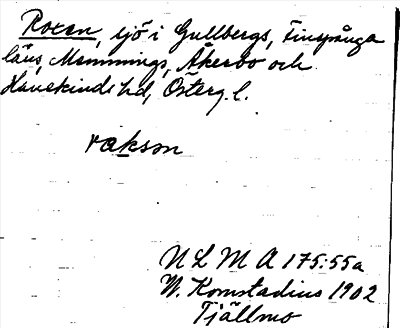 Roxen, sjö i Gullbergs, Finspånga
läns, Memmings, Åkerbo och
Hanekinds hd, Österg. l.
rakson
N L M A 175:55a
W. Komstadius 1902
Tjällmo